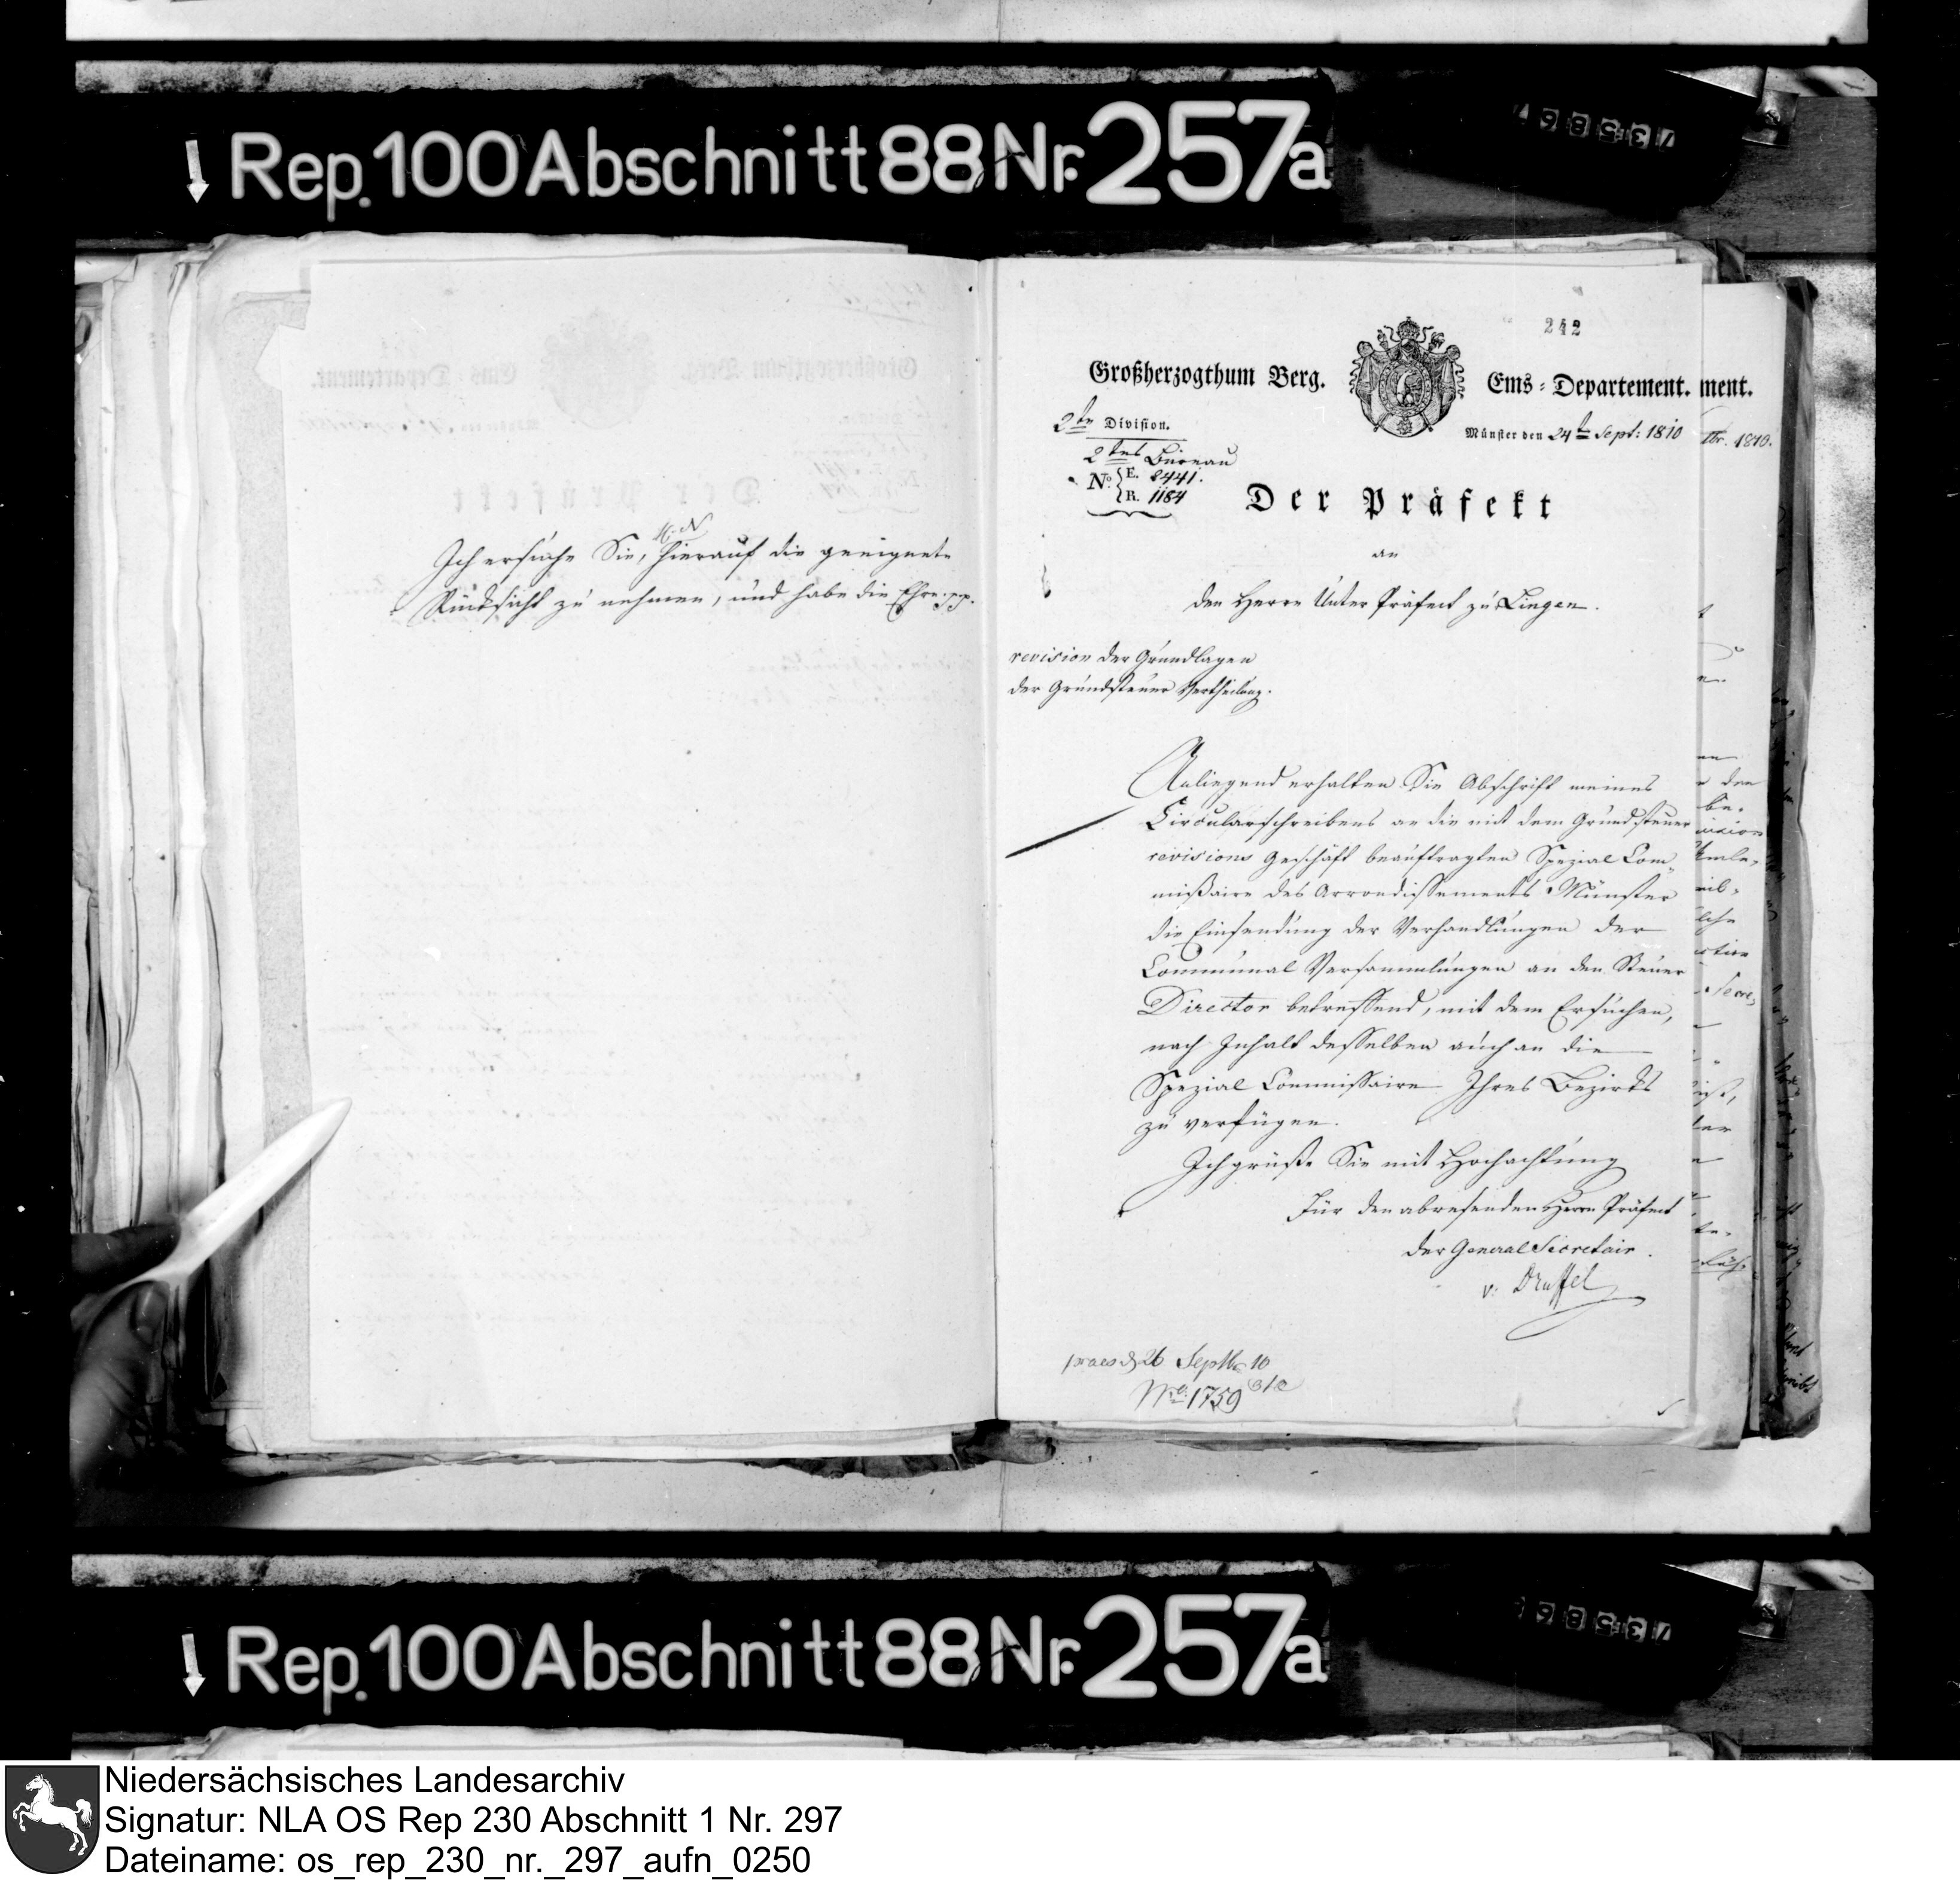 Rep. 100 Abschnitt 88 Nr. 257a
Ich ersuche Sie, hierauf die geeignete
Rücksicht zu nehmen, und habe die Ehre pp.
242
Großherzogthum Berg. Ems-Departement.
ment.
2te Division.
Münster den 24ten Sept: 1810
1810.
2tes Büreau
No. E. 2441.
R. 1184
Der Präfekt
an
den Herrn Unter Präfect zu Lingen.
revision der Grundlagen
der Grundsteuer Vertheilung.
Anliegend erhalten Sie Abschrift meines
Circularschreibens an die mit dem Grundsteuer
revisions Geschäft beauftragten Spezial Com„
mißaire des Arrondissements Münster
die Einsendung der Verhandlungen der
Communal Versammlungen an den Steuer
Director betreffend, mit dem Ersuchen,
nach Inhalt desselben auch an die
Spezial Commissaire Ihres Bezirks
zu verfügen.
Ich grüße Sie mit Hochachtung
Für den abwesenden Herrn Präfect
der General Secretair.
v. Druffel
praes d 26 Septb 10
No. 1759
Rep. 100 Abschnitt 88 Nr. 257a
Niedersächsisches Landesarchiv
Signatur: NLA OS Rep 230 Abschnitt 1 Nr. 297
Dateiname: os_rep_230_nr._297_aufn_0250